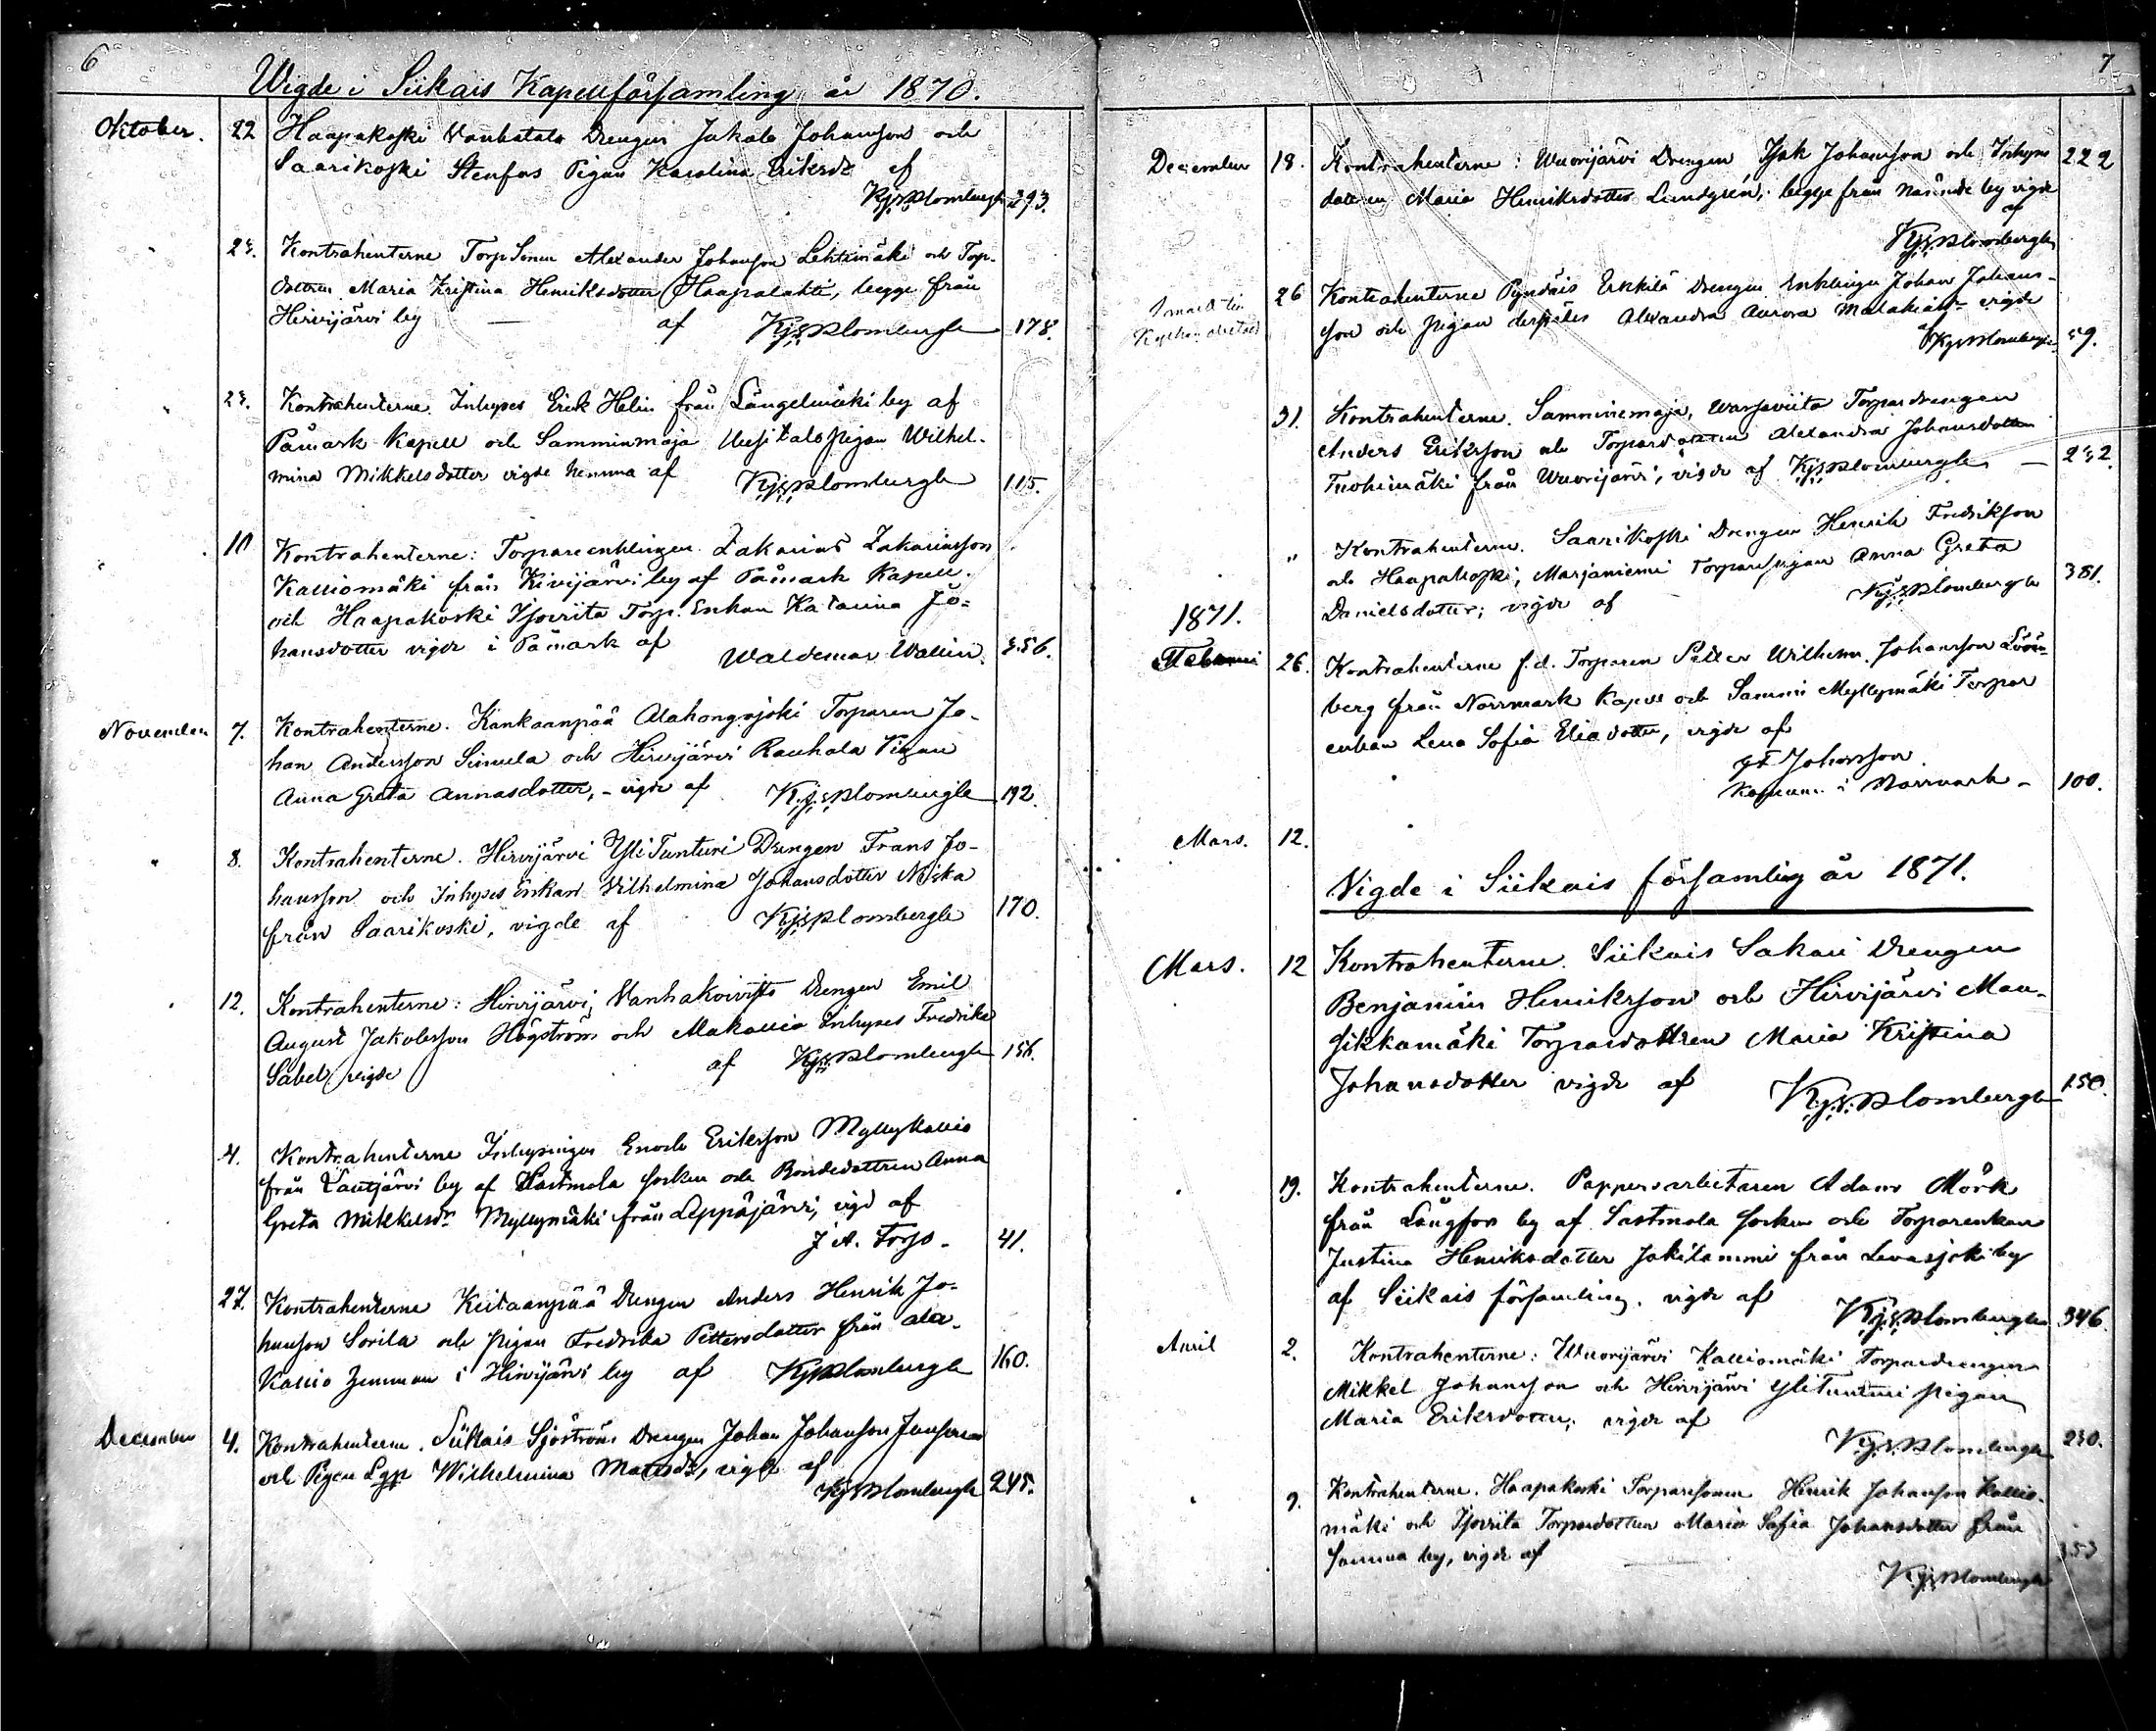 6
Wigde i Siikais Kapellförsamling år 1870.
Oktober. 22 Haapakoski Vanhatalo Drengen Jakob Johansson och
Saarikoski Stenfors Pigan Karolina Eriksdr af
KJSBlombergh 293.
23. Kontrahenterne TorpSonen Alexander Johansson Lehtimäki och Torp-
dottren Maria Kristina Henriksdotter Haapalahti, begge från
Hirvijärvi by — af KJSBlombergh 178.
23. Kontrahenterne Inhyses Erik Helin från Längelmäki by af
Påmark Kapell och Samminmaja Uusitalo Pigan Wilhel-
mina Mikkelsdotter vigde hemma af KJSBlombergh 115.
10 Kontrahenterne: Torpareenklingen Zakarias Zakariasson
Kalliomäki från Kivijärvi by af Påmark Kapell
och Haapakoski Isoviita Torp. Enkan Katarina Jo-
hansdotter vigde i Påmark af Waldemar Wallin. 356.
November 7. Kontrahenterne. Kankaanpää Alahongojoki Torparen Jo-
han Andersson Simula och Hirvijärvi Rauhala Pigan
Anna Greta Annasdotter, – vigde af KJSBlombergh 192.
" 8. Kontrahenterne. Hirvijärvi YliTunturi Drengen Frans Jo-
hansson och Inhyses Enkan Vilhelmina Johansdotter Niska
från Saarikoski, vigde af KJSBlombergh 170.
12. Kontrahenterne: Hirvijärvi, Vanhakoivisto Drengen Emil
August Jakobsson Högström och Makallio Inhyses Fredrika
Sabel, vigde af KJSBlombergh 156.
4. Kontrahenterne Inhysingen Enoch Eriksson Myllykallio
från Lautjärvi by af Sastmola socken och Bondedottren Anna
Greta Mikkelsdr Myllymäki från Leppäjärvi, vigd af
J. A. Forss. 41.
27. Kontrahenterne Keitaanpää Drengen Anders Henrik Jo-
hansson Sorila och pigan Fredrika Pettersdotter från Ala-
Kallio hemman i Hirvijärvi by af KJSBlombergh 160.
December 4. Kontrahenterne. Siikais Sjöströms Drengen Johan Johansson
och Pigan Wilhelmina Matsdr, vigde af
KJSBlombergh 245.
7
December 18. Kontrahenterne: Wuorijärvi Drengen Isak Johansson och Inhyses
dottren Maria Henriksdotter Lundgren; begge från nämnde by vigde
af
KJSBlombergh 222
26 Kontrahenterne Pyndäis Erkkilä Drengen Enklingen Johan Johans-
son och pigan derstädes Alexandra Aurora Malakiasdr vigde
af KJSBlombergh 59.
31. Kontrahenterne. Samminmaja, Torpardrengen
Anders Eriksson och Torpardottren Alexandra Johansdotter
Tuohimäki från Wuorijärvi, vigde af KJSBlombergh — 232.
" Kontrahenterne. Saarikoski Drengen Henrik Fredriksson
och Haapakoski, Marjaniemi Torparepigan Anna Greta
Danielsdotter, vigde af KJSBlombergh 381.
1871.
Februari 26. Kontrahenterne f.d. Torparen Petter Wilhelm Johansson
berg från Norrmark Kapell och Sammi Myllymäki Torpar
enkan Lena Sofia Eliadotter, vigde af
Johansson
Kapellan i Norrmark – 100.
Mars. 12.
Vigde i Siikais församling år 1871.
Mars. 12 Kontrahenterne. Siikais Sakari Drengen
Benjamin Henriksson och Hirvijärvi Man-
sikkamäki Torpardottren Maria Kristina
Johansdotter vigde af KJSBlombergh 150.
19. Kontrahenterne. Pappersarbetaren Adam Mörk
från Långfors by af Sastmola socken och Torparenkan
Justina Henriksdotter Jokilammi från Levasjoki by
af Siikais församling. vigde af KJSBlombergh 346
April 2. Kontrahenterne: Wuorijärvi Kalliomäki Torpardrengen
Mikkel Johansson och Hirvijärvi YliTunturi pigan
Maria Eriksdotter, vigde af
KJSBlombergh 230.
9. Kontrahenterne. Haapakoski Torparesonen Henrik Johansson Kallio-
mäki och Isoviita Torpardottren Maria Sofia Johansdotter från
samma by, vigde af 353
KJSBlombergh